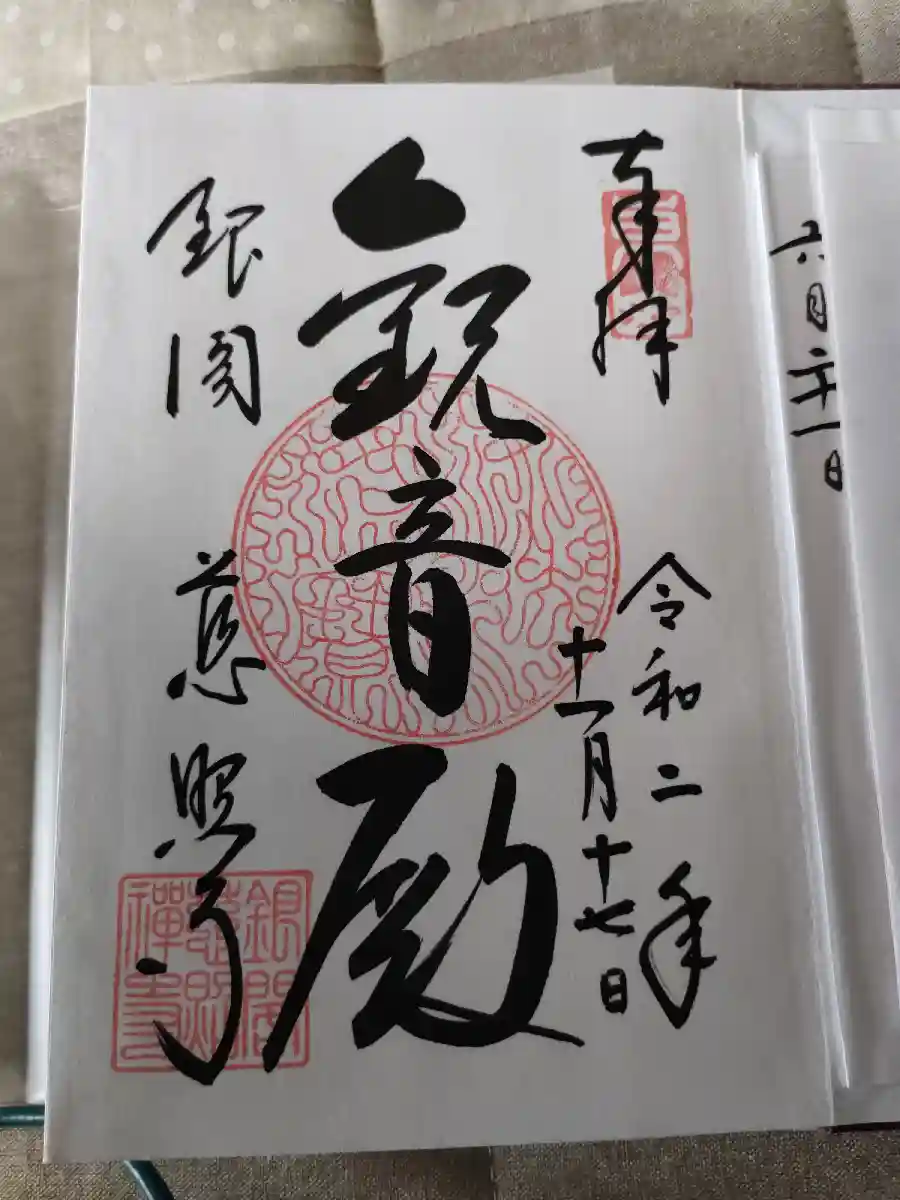 六月二十一日
奉拝
令和二年
十一月十七日
大観音殿
銀閣 慈照寺
銀閣慈照禅寺